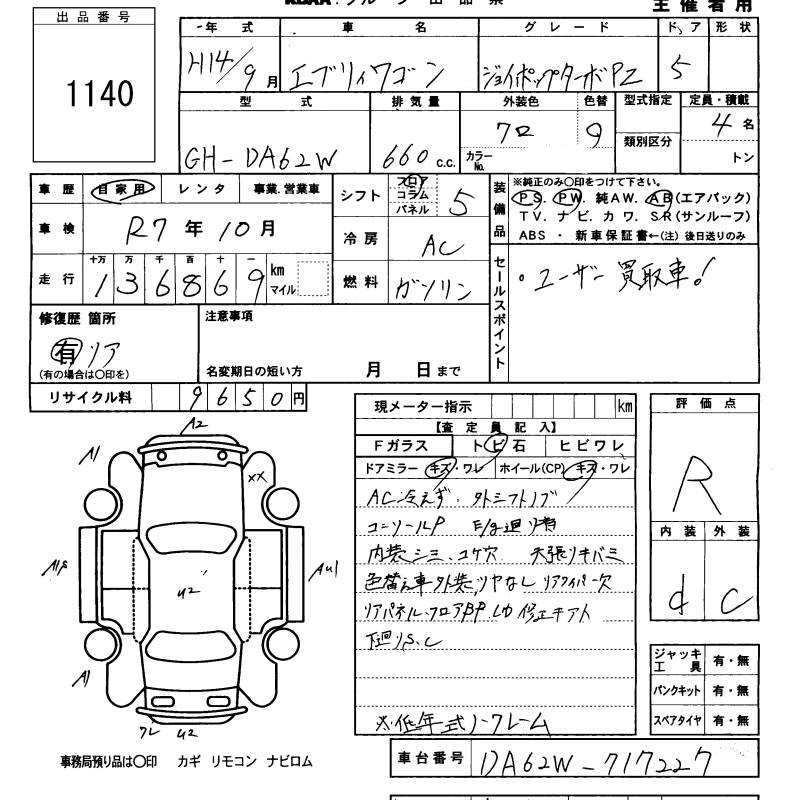 主催者用
出品番号
1140
年式 車名 グレード ドア 形状
H14/9月 エブリィワゴン ジョイポップターボPZ 5
型式 排気量 外装色 色替 型式指定 定員・積載
GH-DA62W 660c.c. クロ 9 類別区分 4名
カラーNo. トン
車歴 自家用 レンタ 事業.営業車
車検 R7年10月
走行 十万 万 千 百 十 一
136869 km マイル
シフト フロア コラム パネル 5
冷房 AC
燃料 ガソリン
装備品
※純正のみ○印をつけて下さい。
PS. PW. 純AW. AB(エアバッグ)
TV. ナビ. カワ. SR(サンルーフ)
ABS ・ 新車保証書←(注) 後日送りのみ
セールスポイント
・ユーザー買取車!
修復歴 箇所
有 リア
(有の場合は○印を)
注意事項
名変期日の短い方 月 日まで
リサイクル料 9650円
A2
A1
XX
U2
A1
ワレ U2
事務局預り品は○印 カギ リモコン ナビロム
現メーター指示 km
【査定員記入】
Fガラス トビ石 ヒビワレ
ドアミラー キズ・ワレ ホイール(CP) キズ・ワレ
AC冷えず. 外シフトノブ
コンソールP E/g廻り
内装シミ、コゲ穴 天張りキバミ
色替え車 外装ツヤなし リアワイパー欠
リアパネル・フロア 修正
下廻りS.C
※低年式ノークレーム
評価点
R
内装 外装
d C
ジャッキ工具 有・無
パンクキット 有・無
スペアタイヤ 有・無
車台番号 DA62W-717227